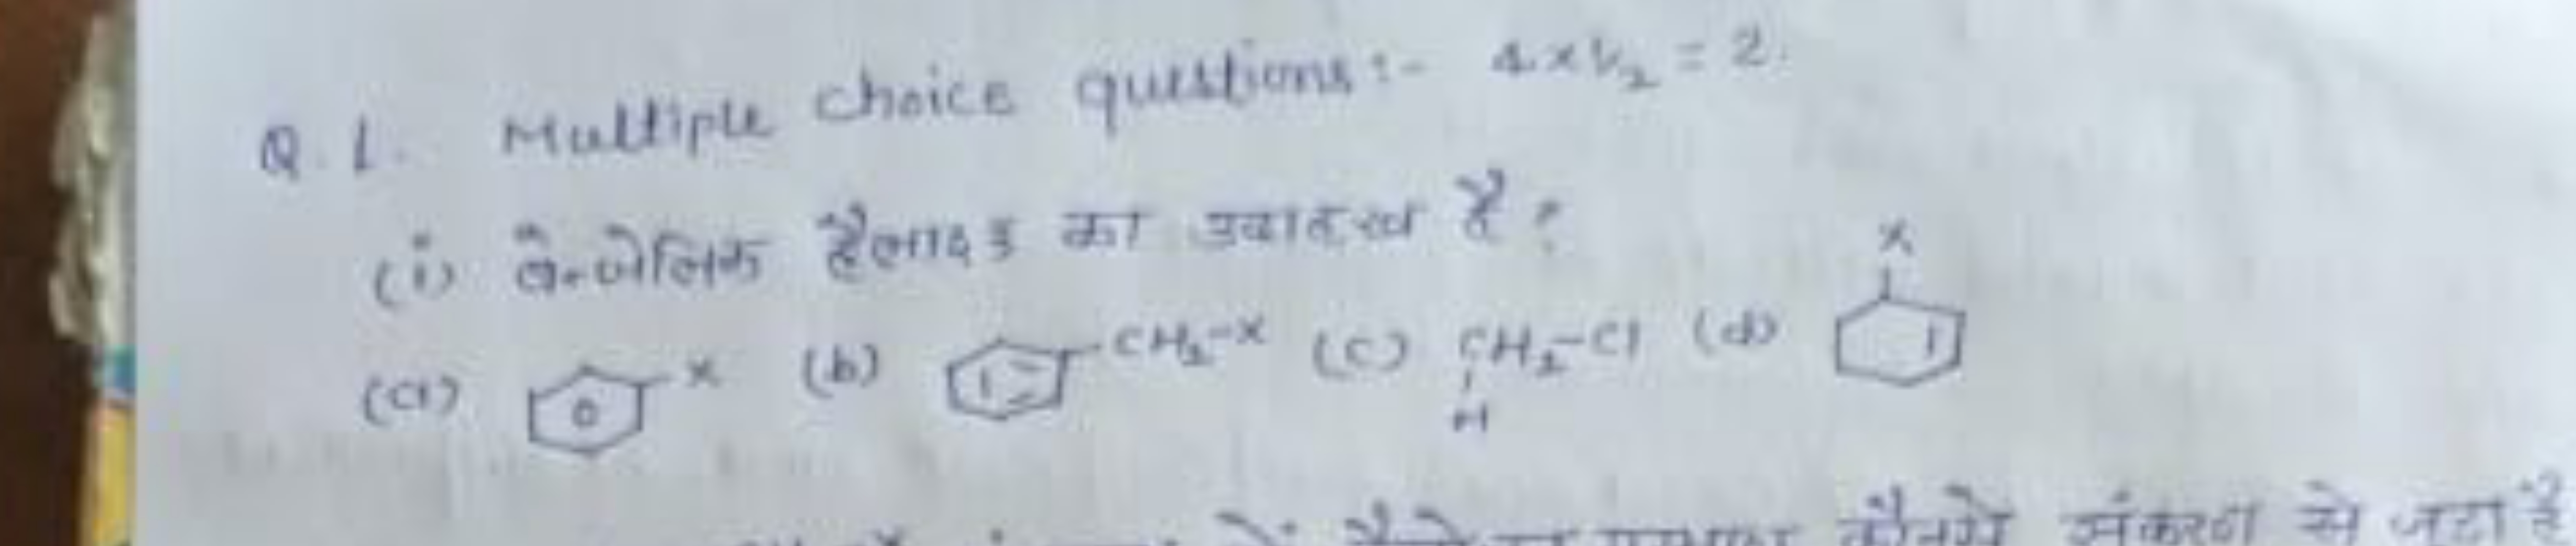 Q.1. Multiple choice questions:- 4×1/2 = 2.
(i) बेन्जेलिक हैलाइड का उदाहरण है?
(a) X (b) CH2-X (c) CH2-Cl (d) X
H
कौनसे संकरण से जुटा है